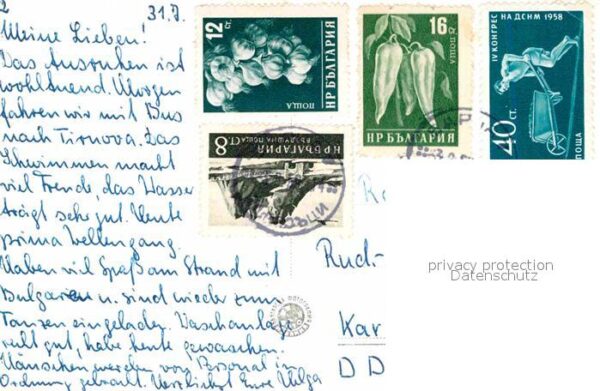 2
31.7.
Meine Lieben!
Das Ausruhen ist
wohltuend. Morgen
fahren wir mit Bus
nach Tirnova. Das
Schwimmen macht
viel Freude, das Wasser
trägt sehr gut. Heute
prima Wellengang.
Haben viel Spaß am Strand mit
Bulgaren u. sind wieder zum
Tanzen eingeladen. Waschanlage
sehr gut, habe heute gewaschen.
Hänschen werden vom Personal in
Ordnung gebracht. Herzlichst Eure Helga
12 СТ.
НР БЪЛГАРИЯ
ПОЩА
16 СТ.
ПОЩА
НР БЪЛГАРИЯ
IV КОНГРЕС
НА ДСНМ 1958
40 СТ.
ПОЩА
НР БЪЛГАРИЯ
ВЪЗДУШНА ПОЩА СТ. 8
Rud.-
Kar
DD
privacy protection
Datenschutz